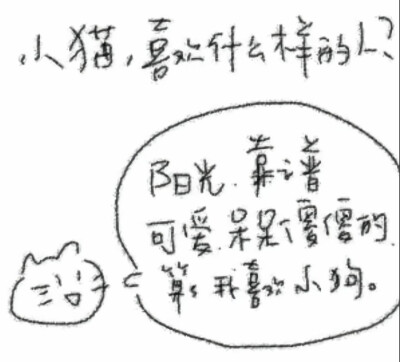 小猫，喜欢什么样的人？
阳光．靠谱
可爱．呆呆傻傻的．
算了我喜欢小狗。